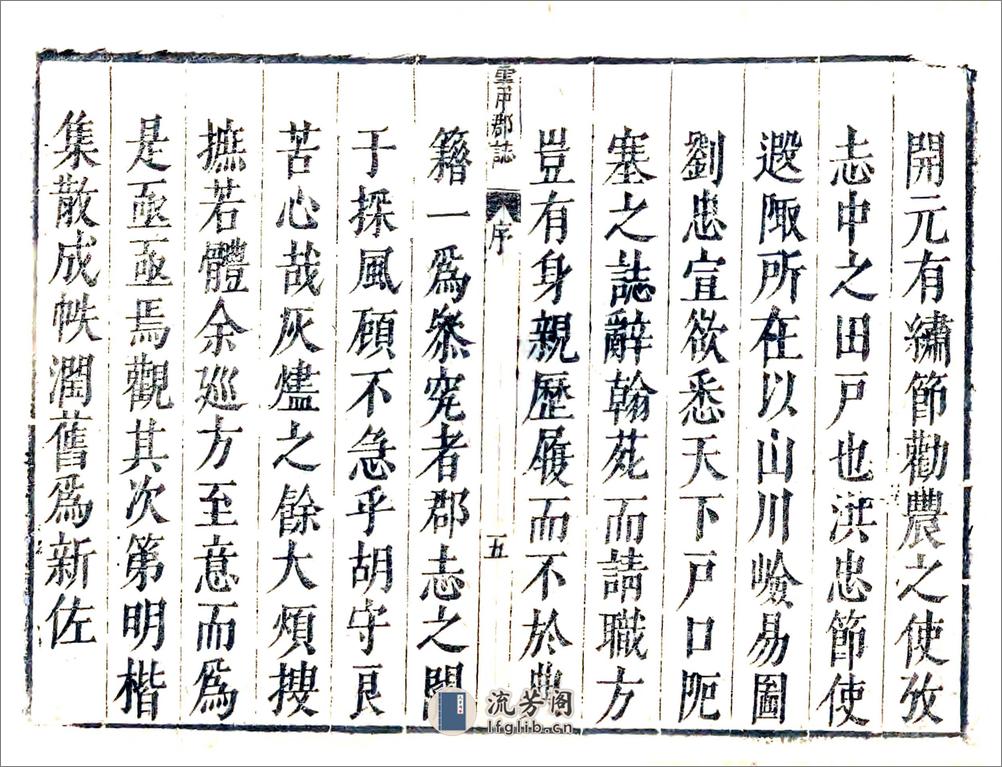 開元有繡節勸農之使攷
志中之田戶也洪忠節使
遐陬所在以山川嶮易圖
劉忠宣欲悉天下戶口阨
塞之誌辭翰苑而請職方
豈有身親歷履而不於典
雲中郡誌 序 五
籍一爲叅究者郡志之關
于採風顧不急乎胡守良
苦心哉灰燼之餘大煩搜
摭若體余廵方至意而爲
是亟亟焉觀其次第明楷
集散成帙潤舊爲新佐
流芳阁
lfglib.cn